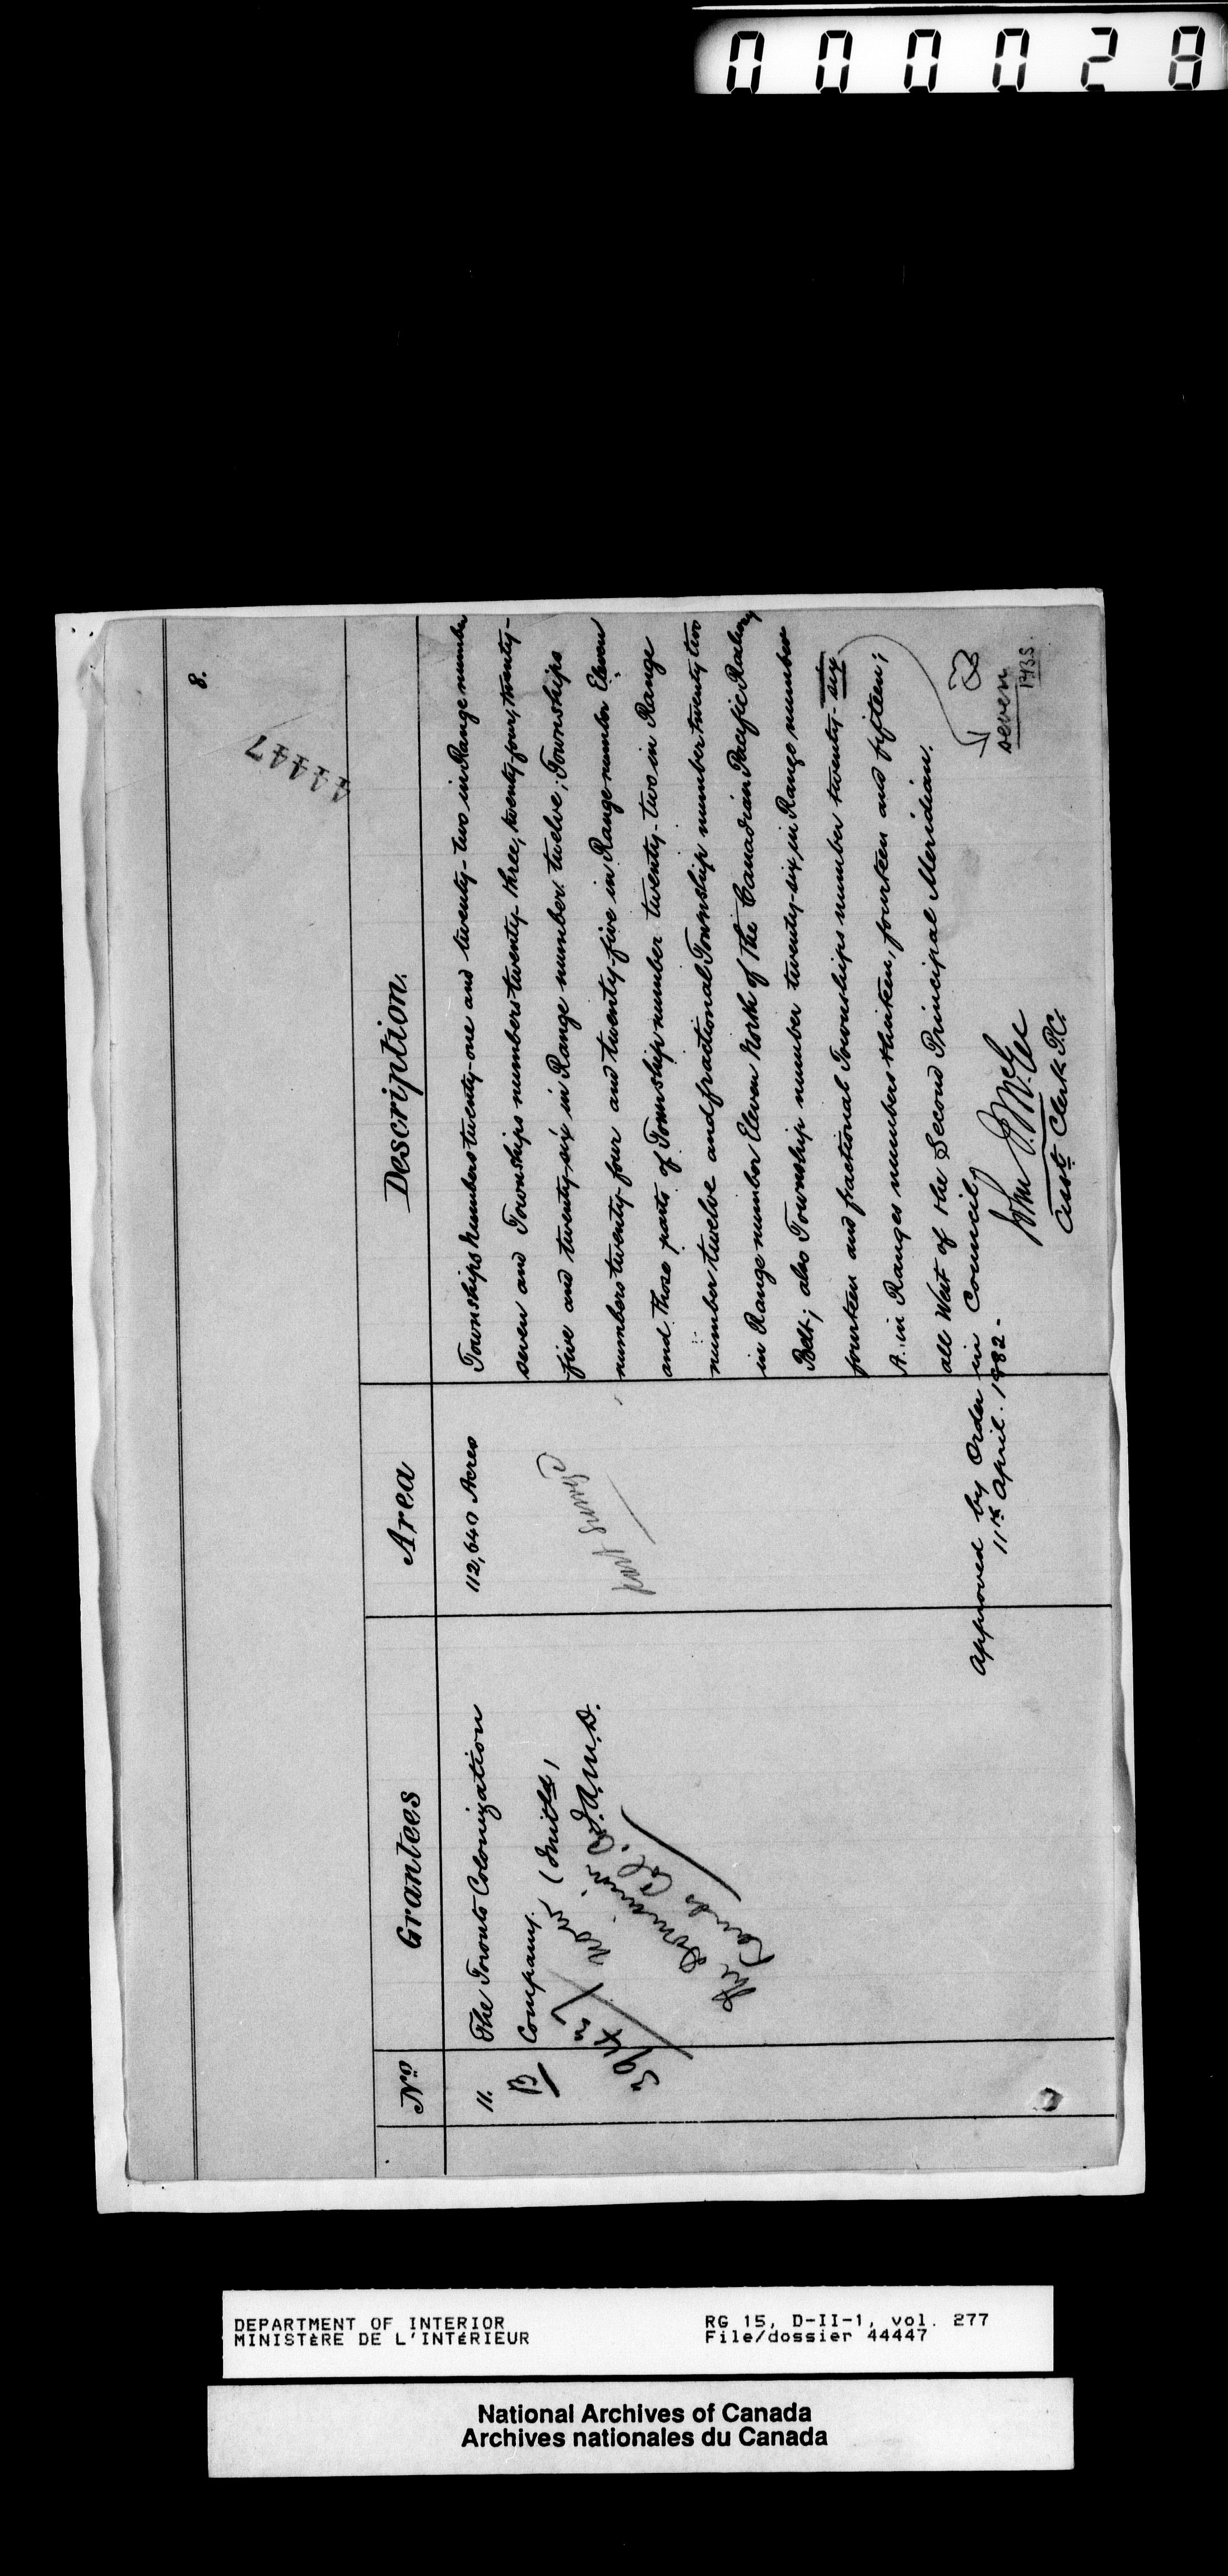 000028
8.
44447
No
Grantees
Area
Description.
11.
B
The Toronto Colonization
Company.
(Limitd)
now
J.A.M.D.
The Dominion
Lands Col. Co.
394
112,640 Acres
part Survey'd
Townships numbers twenty-one and twenty-two in Range number
seven and Townships numbers twenty-three, twenty-four, twenty-
five and twenty-six in Range number twelve; Townships
numbers twenty-four and twenty-five in Range number Eleven
and those parts of Township number twenty-two in Range
number twelve and fractional Township number twenty two
in Range number Eleven North of the Canadian Pacific Railway
Belt; also Township number twenty-six in Range number
fourteen and fractional Townships number twenty-six
A. in Ranges numbers thirteen, fourteen and fifteen;
all West of the Second Principal Meridian.
seven
1435.
Approved by Order in Council,
11th April. 1882-
John J. McGee
Asst. Clerk P.C.
DEPARTMENT OF INTERIOR
MINISTÈRE DE L'INTÉRIEUR
RG 15, D-II-1, vol. 277
File/dossier 44447
National Archives of Canada
Archives nationales du Canada